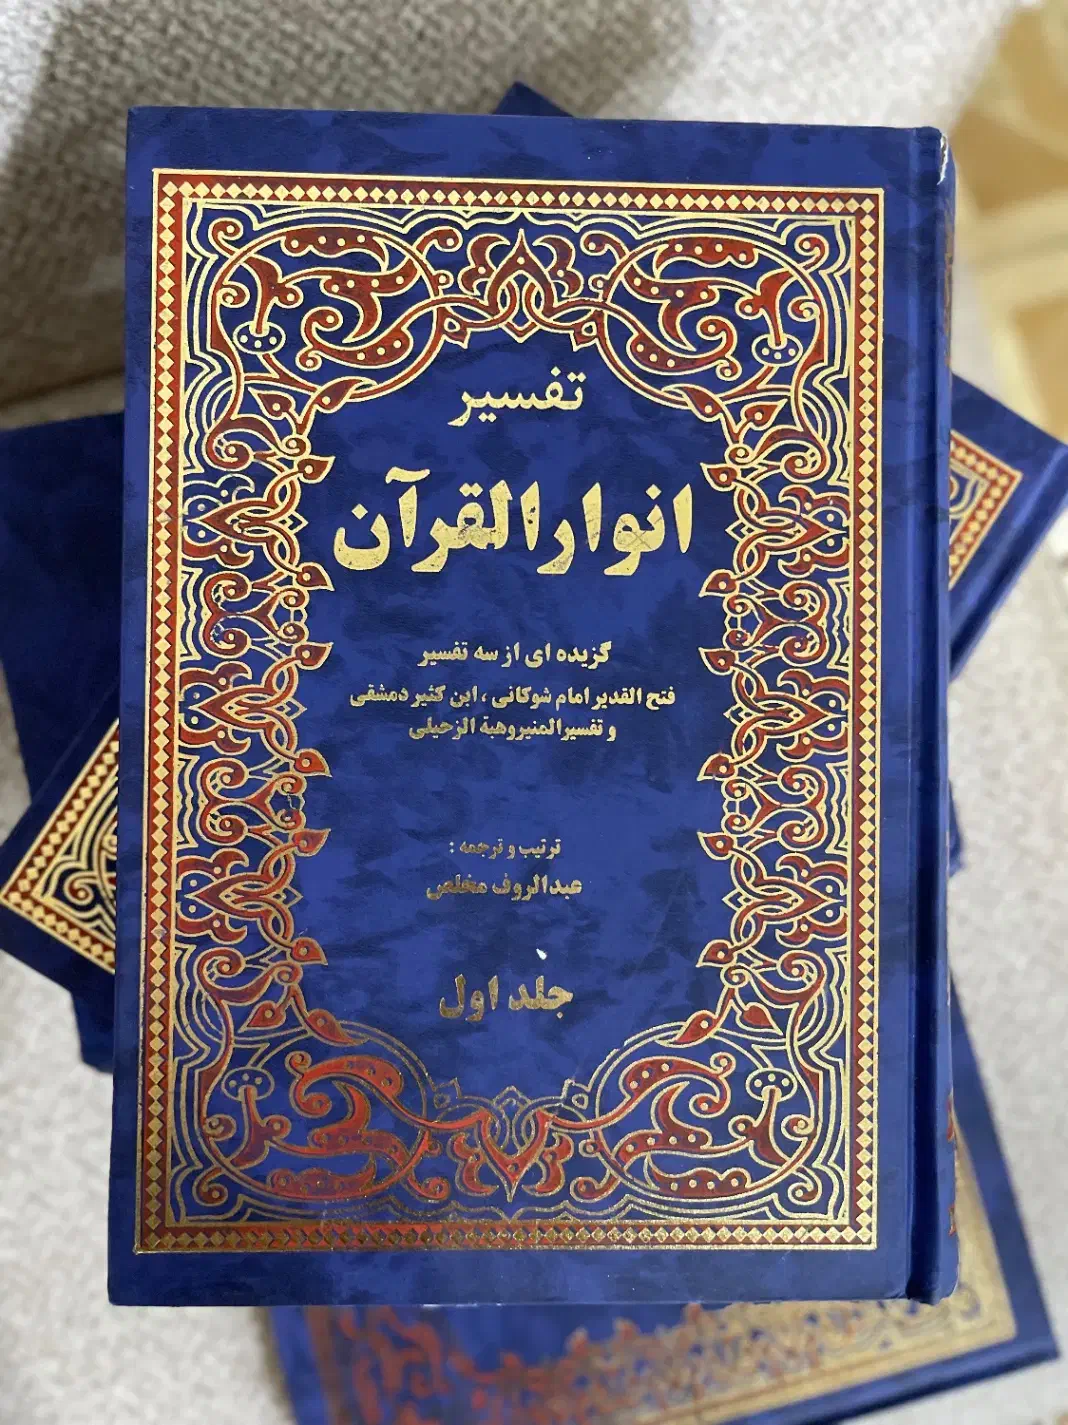 تفسیر
انوارالقرآن
گزیده ای از سه تفسیر
فتح القدیر امام شوکانی ، ابن کثیر دمشقی
و تفسیرالمنیر وهبة الزحیلی
ترتیب و ترجمه :
عبدالروف مخلص
جلد اول